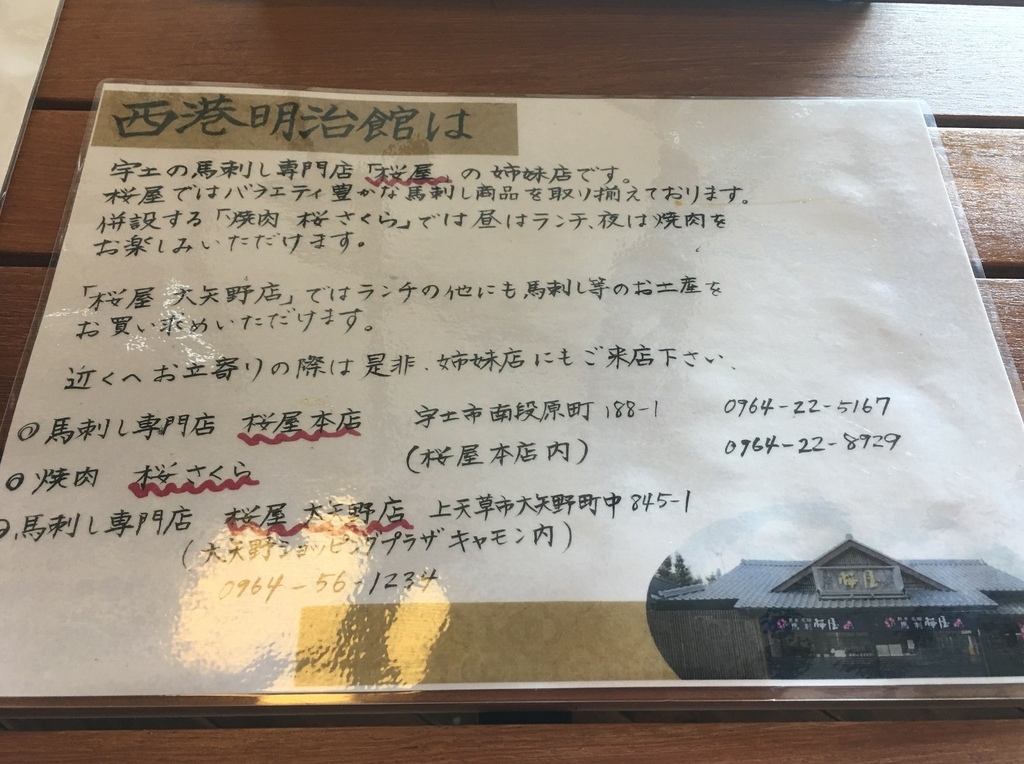 西港明治館は
宇土の馬刺し専門店「桜屋」の姉妹店です。
桜屋ではバラエティ豊かな馬刺し商品を取り揃えております。
併設する「焼肉 桜さくら」では昼はランチ、夜は焼肉を
お楽しみいただけます。
「桜屋 大矢野店」ではランチの他にも馬刺し等のお土産を
お買い求めいただけます。
近くへお立寄りの際は是非、姉妹店にもご来店下さい。
◎馬刺し専門店 桜屋本店 宇土市南段原町188-1 0964-22-5167
◎焼肉 桜さくら (桜屋本店内) 0964-22-8929
◎馬刺し専門店 桜屋 大矢野店 上天草市大矢野町中845-1
(大矢野ショッピングプラザキャモン内)
0964-56-1234
桜屋
馬刺 桜屋 馬刺 桜屋